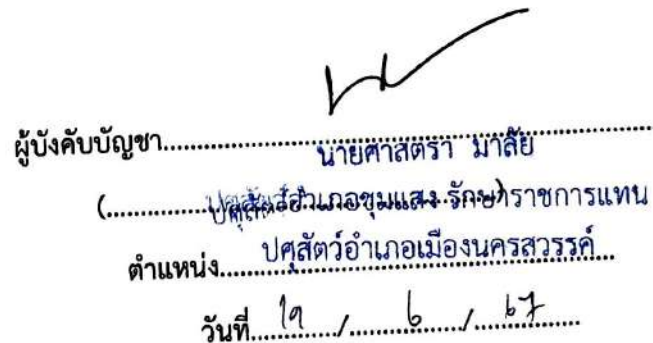 ผู้บังคับบัญชา........................................
นายศาสตรา มาลัย
(............ปศุสัตว์อำเภอชุมแสง รักษาราชการแทน
ตำแหน่ง......ปศุสัตว์อำเภอเมืองนครสวรรค์
วันที่....19....../........6......../...67.........